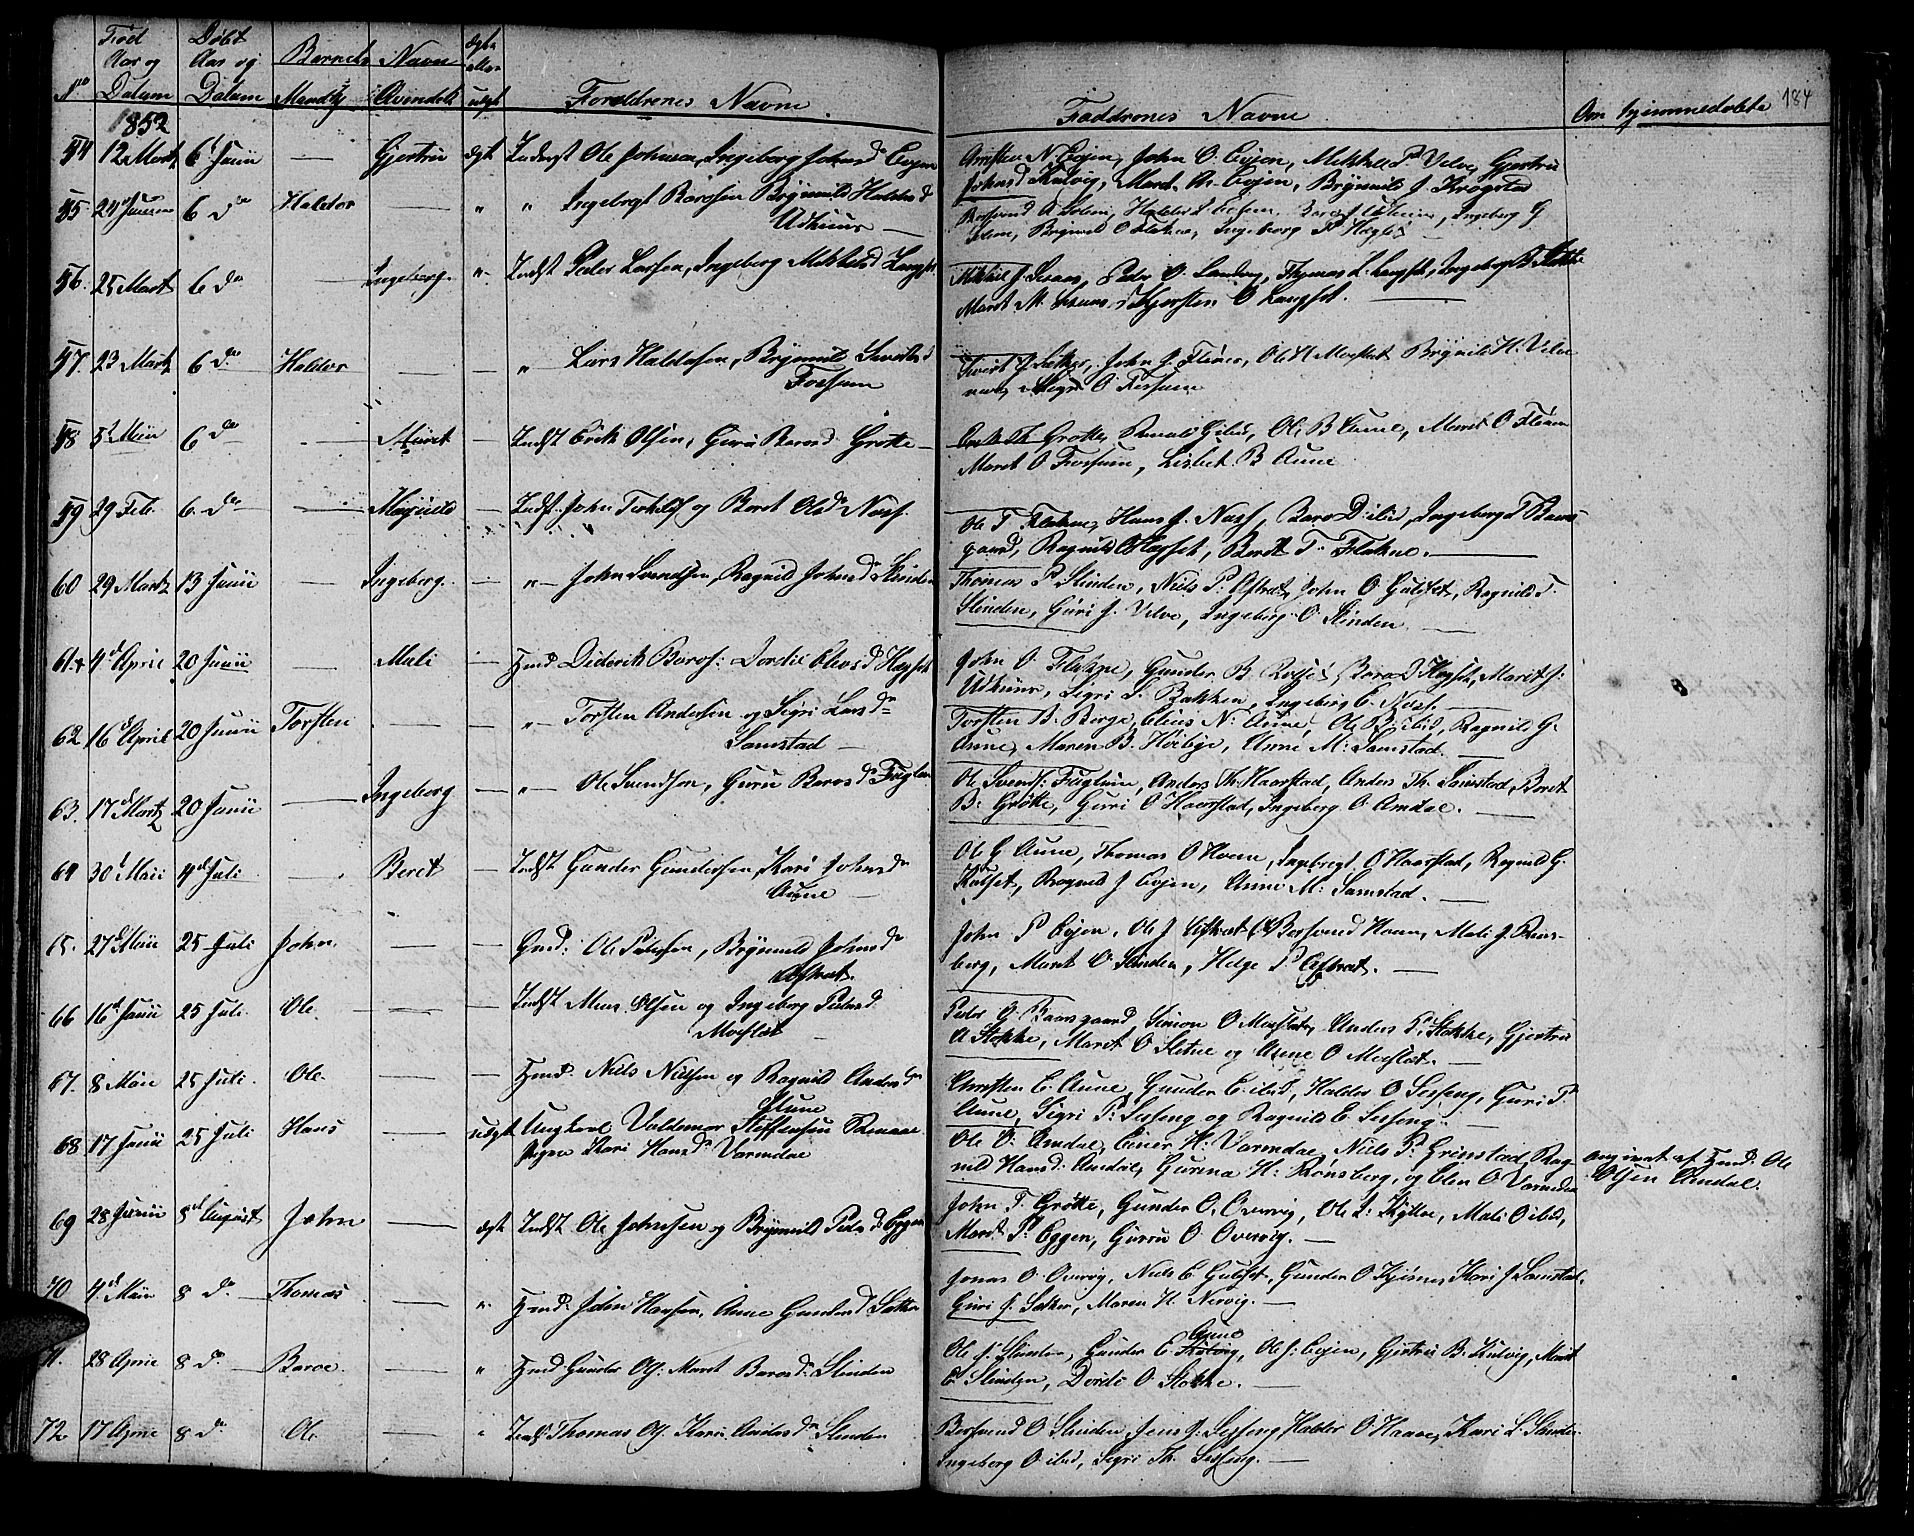 184
Nº Fød Aar og Datum Døbt Aar og Datum Barnets Navn Mandkj Qvindek ægte eller uægt Forældrenes Navne Faddrenes Navne Om hjemmedøbte
1852
54 12 Martz 6te Junii — Gjertru ægt Inderst Ole Johnsen, Ingeborg Johnsd Evjen
Arnsten N. Evjen, John O. Evjen, Mikkel P. Velve, Gjertru
Johnsd Kulvig, Maret Evjen, Brynnild J. Krogstad
55. 24 6 do Haldor — " " Ingebrigt Barosen Brynnild Haldorsd
Udhuus —
Bersvend A Solem, Haldor Ingeborg G
Solem, Brynnild O Flakne, Ingeborg
56. 25 Mart 6 do — Ingeborg " Indst Peder Larsen, Ingeborg Mikkelsd Langset
Mikkel J. Peder O. Thomas L. Langset, Ingeborg Stokke
Maret M. Kjersten O Langset.
57. 23 Martz 6 do Haldor — — " Lars Haldorsen, Brynnild Siversd
Fossum
Sivert J. Sakker, John J. Ole H Moslet Brynnild H. Velve
O Fossum
58 5te Maii 6 do — Maret — Indst Erik Olsen, Guru Barosd Grøtte
Grøtte, Ole B Aune, Maret O
Maret O Fossum, Lisbet B Aune
59 29 Feb. 6. do — Magnild — Indst. John og Beret Olsd Næss.
Ole T Flakne, Hans J. Næss, Baro D ibid, Ingeborg
gaard, Ragnild O Høyset, Beret T. Flakne.
60 29 Martz 13 Junii — Ingeborg. — " John Svendsen, Ragnild Johnsd Slinden
Thomas P Slinden, Niels P. Østrat, John O Gulset, Ragnild
Slinden, Guri J. Velve, Ingeborg O Slinden.
61 4de April 20 Junii — Mali — Hmd Diderik Baros: Dordie Eliasd Høyset
John O Flakne, Gunder B. Baro D Høyset, Marit J.
Udhuus, Sigri L. Bakken, Ingeborg E. Næss.
62 16de April 20 Junii Torsten — — " Torsten Andersen og Sigri Larsdr
Samstad —
Torsten B. Berge, Elias N. Aune, Ole B. ibid, Ragnild G.
Aune, Maren B. Høiby, Anne M. Samstad.
63. 17de Martz 20 Junii — Ingeborg — " Ole Svendsen, Guru Barosdr Fuglem
Ole Svends: Fuglem, Anders Th. Haarstad, Anders Th. Samstad, Beret
B. Grøtte, Guri O Haarstad, Ingeborg O. Amdal.
64 30te Maii 4de Juli — Beret — Indst Gunder Gundersen, Kari Johnsdr
Aune —
Ole G Aune, Thomas O Hoem, Ingebrigt O Haarstad, Ragnild G.
Kulset, Ragnild J. Evjen, Anne M. Samstad.
65. 27de Maii 25 Juli John — — Gmd. Ole Pedersen, Brynnild Johnsdr
Østrat.
John P Evjen, Ole J. Østrat Bersvend Hoem, Mali J. Rens-
berg, Maret O. Slinden, Helge P Østrat.
66 16de Junii 25 Juli Ole — — Indst Mons Olsen og Ingeborg Pedersd
Moslet
Peder O. Baardsgaard, Simon O Moslet, Anders P. Stokke, Gjertru
A Stokke, Maret O Sletne og Anne O Moslet.
67. 8 Maii 25 Juli Ole — — Hmd. Niels Nielsen og Ragnild Andersdr
Aune
Arnsten E. Aune, Gunder E. ibid, Haldor O Sesseng, Guri P.
Aune, Sigri P. Sesseng og Ragnild E. Sesseng.
68 17 Junii 25 Juli Hans — uægt Ungkarl Valdemar Steffensen
Pigen Kari Hansdr Varmdal
Ole O. Amdal, Einer H. Varmdal, Niels P. Grinstad, Rag-
nild Hansd. Amdal, Gurena H. Rønsberg, og Elen O Varmdal
angivet af Hmd. Ole
Olsen Amdal.
69 28 Junii 8de August John — ægt Indst Ole Johnsen og Brynnild Pedersdr Eggen
John T. Grøtte, Gunder O. Overvig, Ole L. Kjelle, Mali O ibid,
Maret P. Eggen, Gurru O. Overvig.
70 4de Maii 8 do Thomas — " Hmd. John Hansen, Anne Gundersd Sakker
Jonas O Overvig, Niels E. Gulset, Gunder O Kjøsnes, Kari J. Samstad,
Guri J. Sakker, Maren H. Nervig.
71. 28 April 8 do Baroe — " Hmd Gunder Ols: Maret Barosdr Slinden
Aune
Ole J. Slinden, Gunder E Kulvig, Ole J. Evjen, Gjertru B. Kulvig, Maret
E Slinden, Dordi O Stokke.
72 17 April 8 do Ole — " Indst Thomas Ols: Kari Andersdr Slinden
Bersvend O Slinden, Jens J. Sesseng, Haldor O Haave, Kari L Slinden
Ingeborg O ibid, Sigri Th. Sesseng.